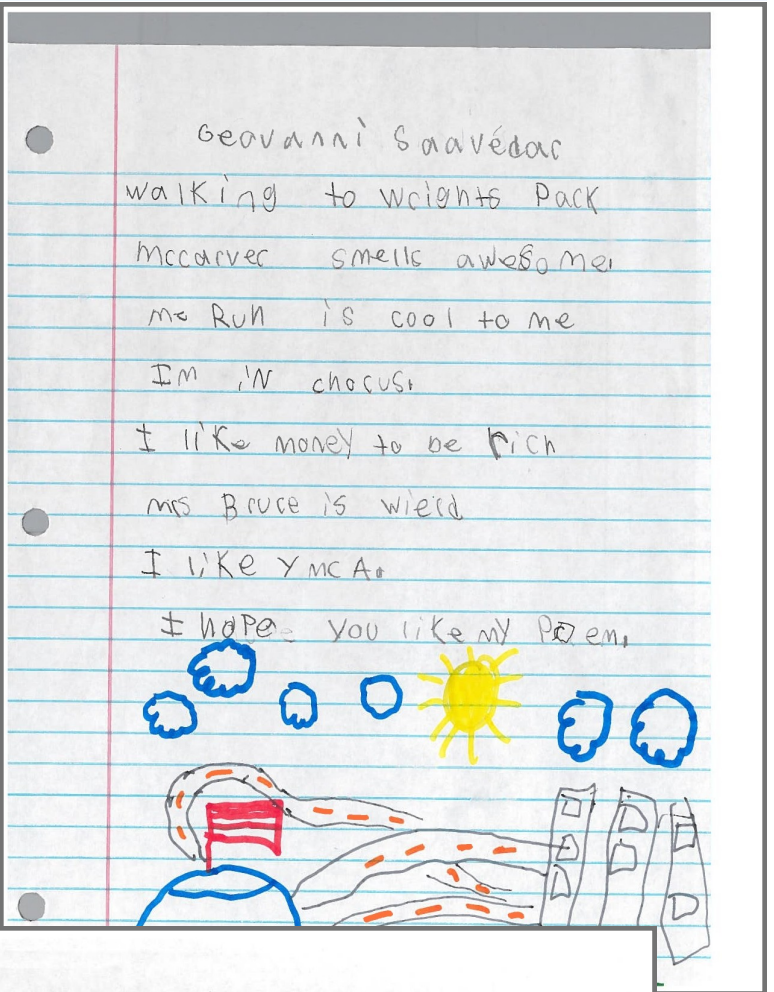 Geovanni Saavédar
walking to wrights Pack
mccarver smells awesome.
me Run is cool to me
Im iN chorus.
I like money to be rich
mrs Bruce is wierd
I like YmcA.
I hope you like my Poem.